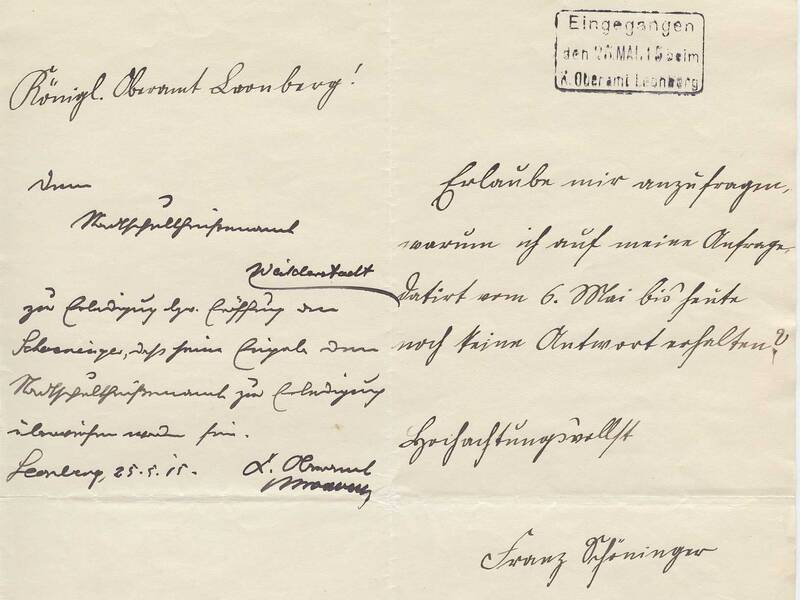 Königl. Oberamt Leonberg!
Eingegangen
den 25. MAI. 15 beim
K. Oberamt Leonberg
Erlaube mir anzufragen,
warum ich auf meine Anfrage,
datirt vom 6. Mai bis heute
noch keine Antwort erhalten?
Hochachtungsvollst
Franz Schöninger
Dem
Stadtschultheißenamt
Weilderstadt
zur Erledigung bzw. Eröffnung dem
Schoeninger, daß seine Eingabe dem
Stadtschultheißenamt zur Erledigung
überwiesen worden sei.
Leonberg, 25.5.15. K. Oberamt